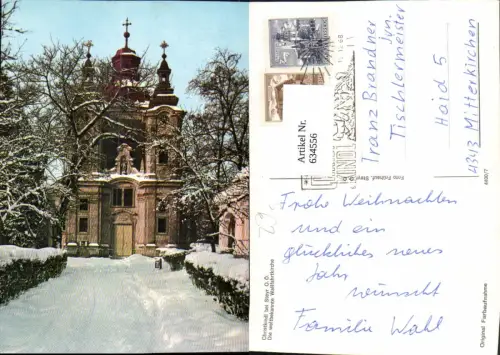 Artikel Nr.
634556
Franz Brandner
jun.
Tischlermeister
Haid 5
4343 Mitterkirchen
Frohe Weihnachten
und ein
glückliches neues
Jahr
wünscht
Familie Wahl
Christkindl bei Steyr O. Ö.
Die weltbekannte Wallfahrtskirche
Original Farbaufnahme